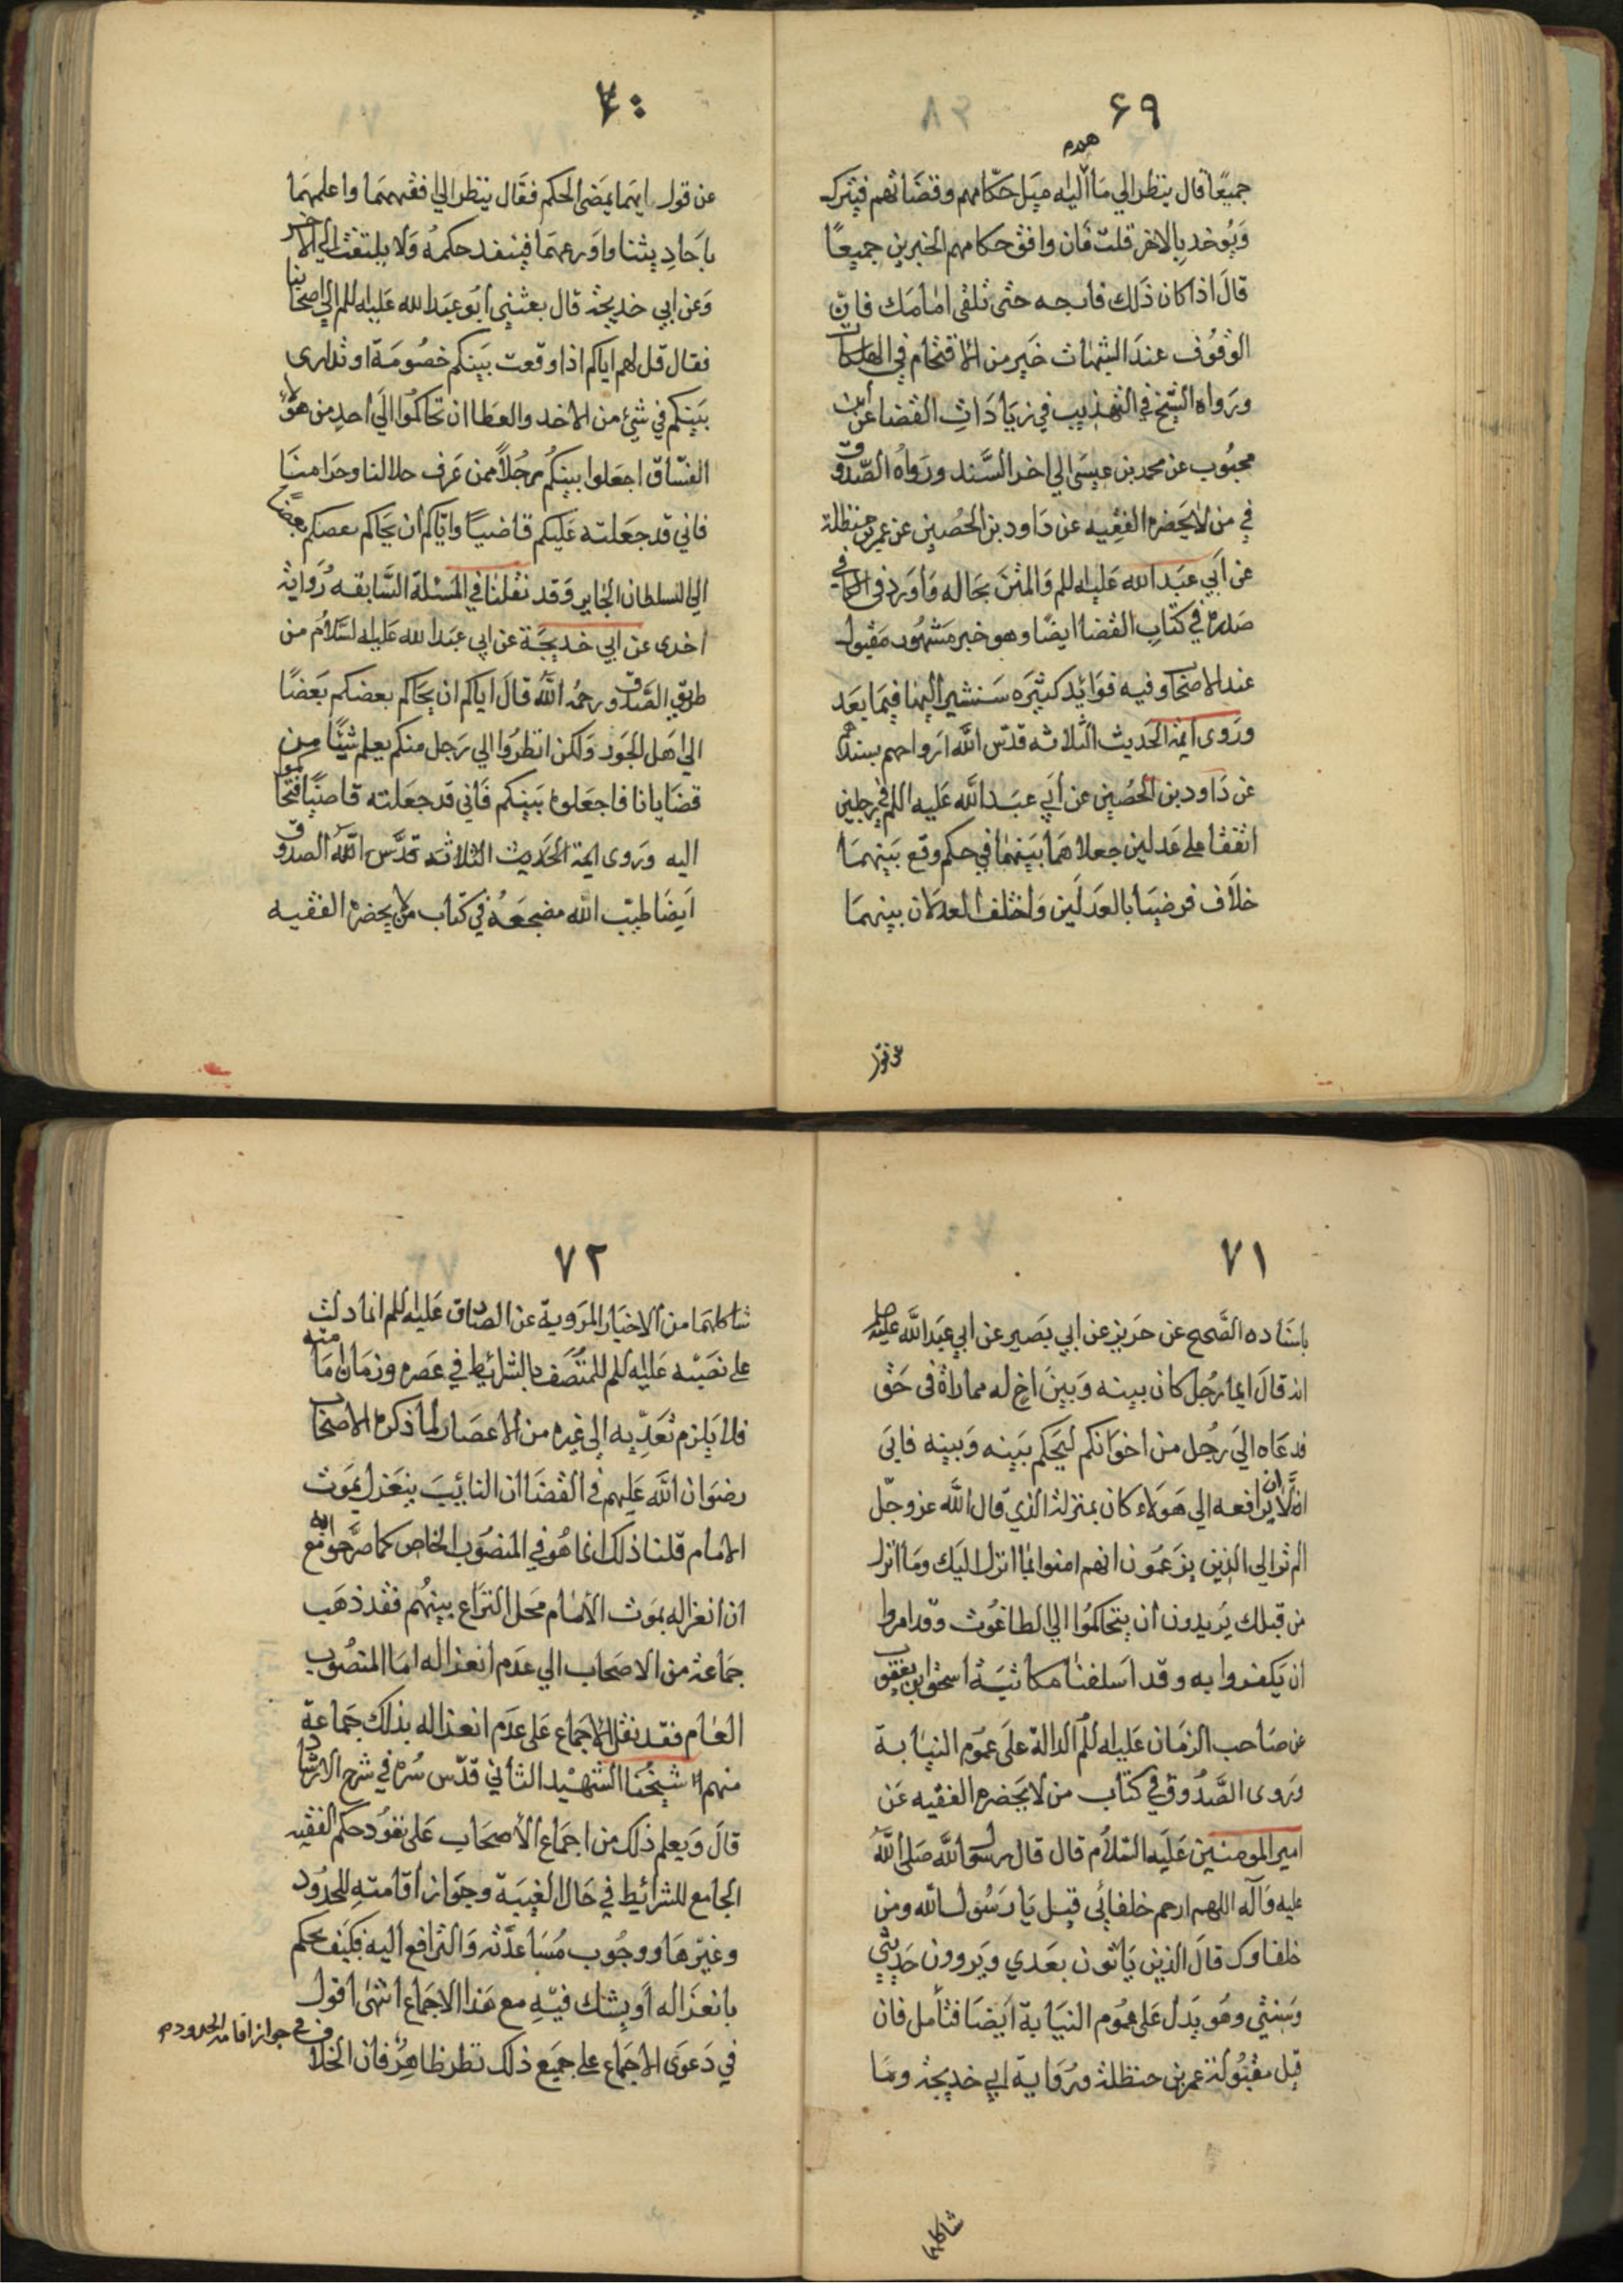 ۶۹
هم
جميعًا قال ينظر الي ما اليه ميل حكّامهم وقضاتهم فيترك
ويوخد بالاخر قلت فان وافق حكامهم الخبرين جميعًا
قال اذا كان ذلك فارجه حتى تلقى امامك فانّ
الوقوف عند الشبهات خير من الاقتحام في الهلكات
ورواه الشيخ في التهذيب في زيادات القضا عن ابن
محبوب عن محمد بن عيسى الي اخر السند ورواه الصّدوق
في من لايحضره الفقيه عن داود بن الحصين عن عمر بن حنظلة
عن أبي عبد الله عليه السلم والمتن بحاله واورد في الكافي
صدره في كتاب القضا ايضًا وهو خبر مشهور مقبول
عند الاصحاب وفيه فوائد كثيره سنشير اليها فيما بعد
وروى ائمة الحديث الثلاثه قدّس الله ارواحهم بسندهم
عن داود بن الحصين عن أبي عبد الله عليه السلم في رجلين
اتفقا على عدلين جعلاهما بينهما في حكم وقع بينهما
خلاف فرضيا بالعدلين واختلف العدلان بينهما
عن قول
۷۰
عن قول ايهما يمضى الحكم فقال ينظر الي افقههما واعلمهما
باحاديثنا واورعهما فينفد حكمه ولا يلتفت الي الاخر
وعن ابي خديجة قال بعثني أبو عبد الله عليه السلم الي اصحابنا
فقال قل لهم اياكم اذا وقعت بينكم خصومة او تدارى
بينكم في شئ من الاخد والعطا ان تحاكموا الي أحد من هؤلا
الفسّاق اجعلوا بينكم رجلاً ممن عرف حلالنا وحرامنا
فاني قد جعلته عليكم قاضيًا واياكم أن يحاكم بعضكم بعضًا
الي السلطان الجاير وقد نقلنا في المسئلة السابقه رواية
اخرى عن ابي خديجة عن ابي عبد الله عليه السلام من
طريق الصدوق رحمه الله قال اياكم ان يحاكم بعضكم بعضًا
الي اهل الجور ولكن انظروا الي رجل منكم يعلم شيئًا من
قضايانا فاجعلوه بينكم فأني قد جعلته قاضيًا فتحاكموا
اليه وروى ايمة الحديث الثلاثة قدّس الله الصدوق
ايضا طيّب الله مضجعه في كتاب من لايحضره الفقيه
۷۱
باسناده الصّحيح عن حريز عن ابي بصير عن ابي عبد الله عليه
انه قال ايما رجل كان بينه وبين اخ له مماراة فى حق
فدعاه الى رجل من اخوانكم ليحكم بينه وبينه فابى
الّا ان يرافعه الي هؤلاء كان بمنزلة الذي قال الله عز وجلّ
الم تر الي الذين يزعمون انهم امنوا بما انزل اليك وما انزل
من قبلك يريدون أن يتحاكموا الي الطاغوت وقد امروا
ان يكفروا به وقد اسلفنا مكاتبة اسحق ابن يعقوب
عن صاحب الزمان عليه السلم الدالة على عموم النيابة
وروى الصّدوق في كتاب من لا يحضره الفقيه عن
امير المومنين عليه السلام قال قال رسول الله صلى الله
عليه وآله اللهم ارحم خلفائي قيل يا رسول الله ومن
خلفاوك قال الذين ياتون بعدي ويروون حديثي
وسنتي وهو يدل على عموم النيابة أيضا فتأمل فان
قيل مقبولة عمر بن حنظلة ورواية ابي خديجة وما
شاكلهما
۷۲
شاكلهما من الاخبار المروية عن الصادق عليه السلم انما دلت
على نصبه عليه السلم للمتصف بالشرايط في عصره وزمان امامته
فلا يلزم تعدّيه الى غيره من الاعصار لما ذكره الاصحاب
رضوان الله عليهم في القضا ان النائيب ينعزل بموت
الامام قلنا ذلك انما هو في المنصوب الخاص كما صرّحوا به مع
ان انعزاله بموت الامام محل النزاع بينهم فقد ذهب
جماعة من الاصحاب الي عدم انعزاله اما المنصوب
العام فقد نقل الاجماع على عدم انعزاله بذلك جماعة
منهم شيخنا الشهيد الثاني قدّس سره في شرح الارشاد
قال ويعلم ذلك من اجماع الأصحاب على نفود حكم الفقيه
الجامع للشرائيط في حال الغيبة وجواز أقامته للحدود
وغيرها ووجوب مساعدته والترافع اليه فكيف يحكم
بانعزاله أو يشك فيه مع هذا الاجماع انتهى اقول
في دعوى الاجماع على جميع ذلك نظر ظاهر فان الخلاف
في جواز اقامة الحدود